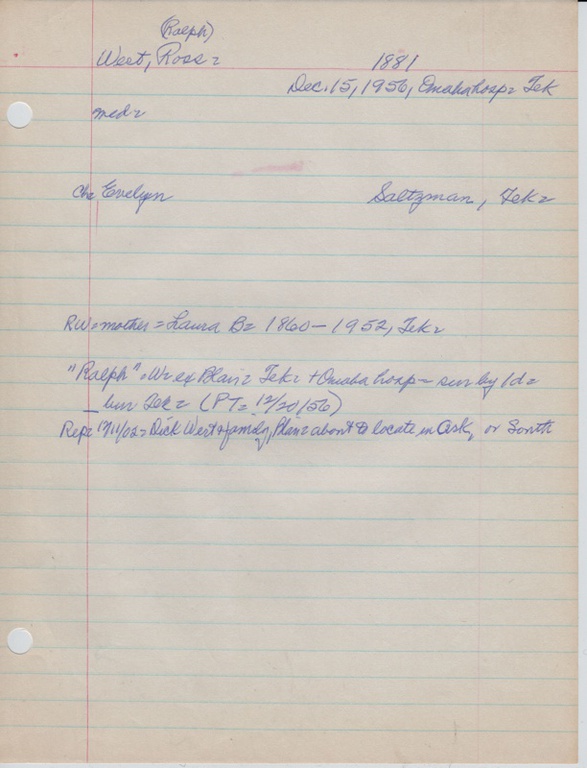 (Ralph)
West, Ross = 1881
Dec. 15, 1956, Omaha hosp = Tek
med =
Ch = Evelyn Saltzman, Tek =
RW = mother = Laura B = 1860 - 1952, Tek =
"Ralph" = W = ex Blair = Tek = + Omaha hosp = sur by 1 d =
bur Tek = (PT = 12/20/56)
Rep = /11/02 = Dick West + family, Blair = about to locate in Ark, or South